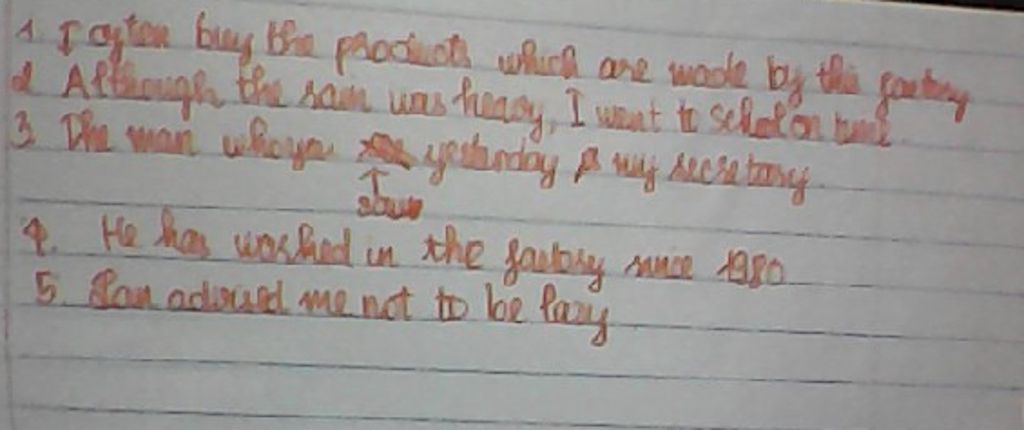 1. I often buy the products which are made by this factory
2 Although the rain was heavy, I went to school on time
3. The man who you yesterday is my secretary.
saw
4. He has worked in the factory since 1980
5. advised me not to be lazy